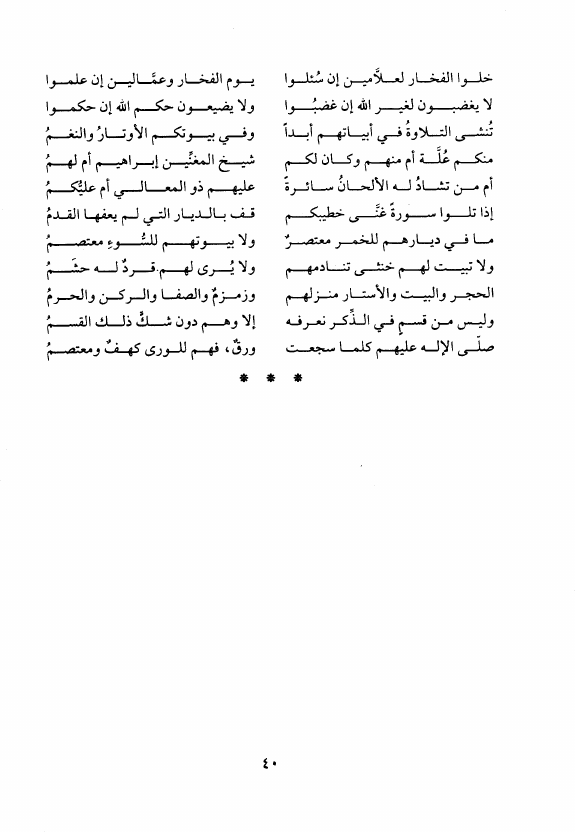 خلوا الفخار لعلاَّمين إن سُئلوا يوم الفخار وعمَّالين إن علموا
لا يغضبون لغير الله إن غضبُوا ولا يضيعون حكم الله إن حكموا
تُنشى التلاوةُ في أبياتهم أبداً وفي بيوتكم الأوتارُ والنغمُ
منكم عُلَّة أم منهم وكان لكم شيخ المغنِّين إبراهيم أم لهمُ
أم من تشادُ له الألحانُ سائرةً عليهم ذو المعالي أم عليُّكمُ
إذا تلوا سورةً غنَّى خطيبكم قف بالديار التي لم يعفها القدمُ
ما في ديارهم للخمر معتصرٌ ولا بيوتهم للسُّوءِ معتصمُ
ولا تبيت لهم خنثى تنادمهم ولا يُرى لهم قردٌ له حشَمُ
الحجر والبيت والأستار منزلهم وزمزمٌ والصفا والركن والحرمُ
وليس من قسمٍ في الذِّكر نعرفه إلا وهم دون شكٍّ ذلك القسمُ
صلَّى الإله عليهم كلما سجعت ورقٌ، فهم للورى كهفٌ ومعتصمُ
* * *
٤٠